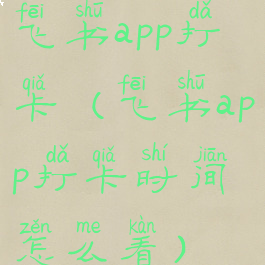 fēi shū dǎ
飞书app打
qiǎ fēi shū
卡(飞书ap
dǎ qiǎ shí jiān
p打卡时间
zěn me kàn
怎么看)